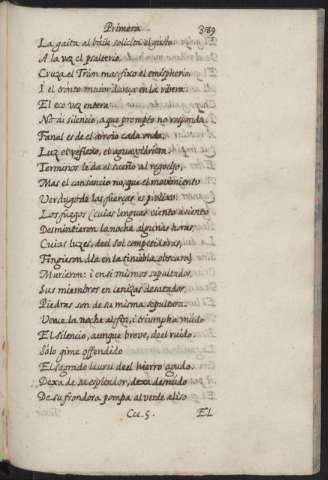 Primera 389
La gaita al baile solicita el gusto,
A la voz el psalterio.
Cruza el Trion mas fixo el emispherio,
I el tronco maior danza en la ribera:
El eco voz entera
No ai silencio, a que prompto no responda,
Fanal es de el arroio cada onda,
Luz el reflexo, el agua vidriera.
Termino le da el sueño al regocijo,
Mas el cansancio no, que el movimiento
Verdugo de las fuerças es prolixo.
Los fuegos (cuias lenguas ciento a ciento
Desmintieron la noche algunas horas,
Cuias luzes, de el Sol competidoras,
Fingieron dia en la tiniebla obscura)
Murieron: i en si mismos sepultados,
Sus miembros en cenizas desatados,
Piedras son de su misma sepultura.
Vence la noche al fin, i triumpha mudo
El silencio, aunque breve, de el ruido.
Sólo gime offendido
El sagrado laurel de el hierro agudo.
Dexa de su esplendor, dexa desnudo
De su frondosa pompa al verde aliso
Ccc. 5. EL